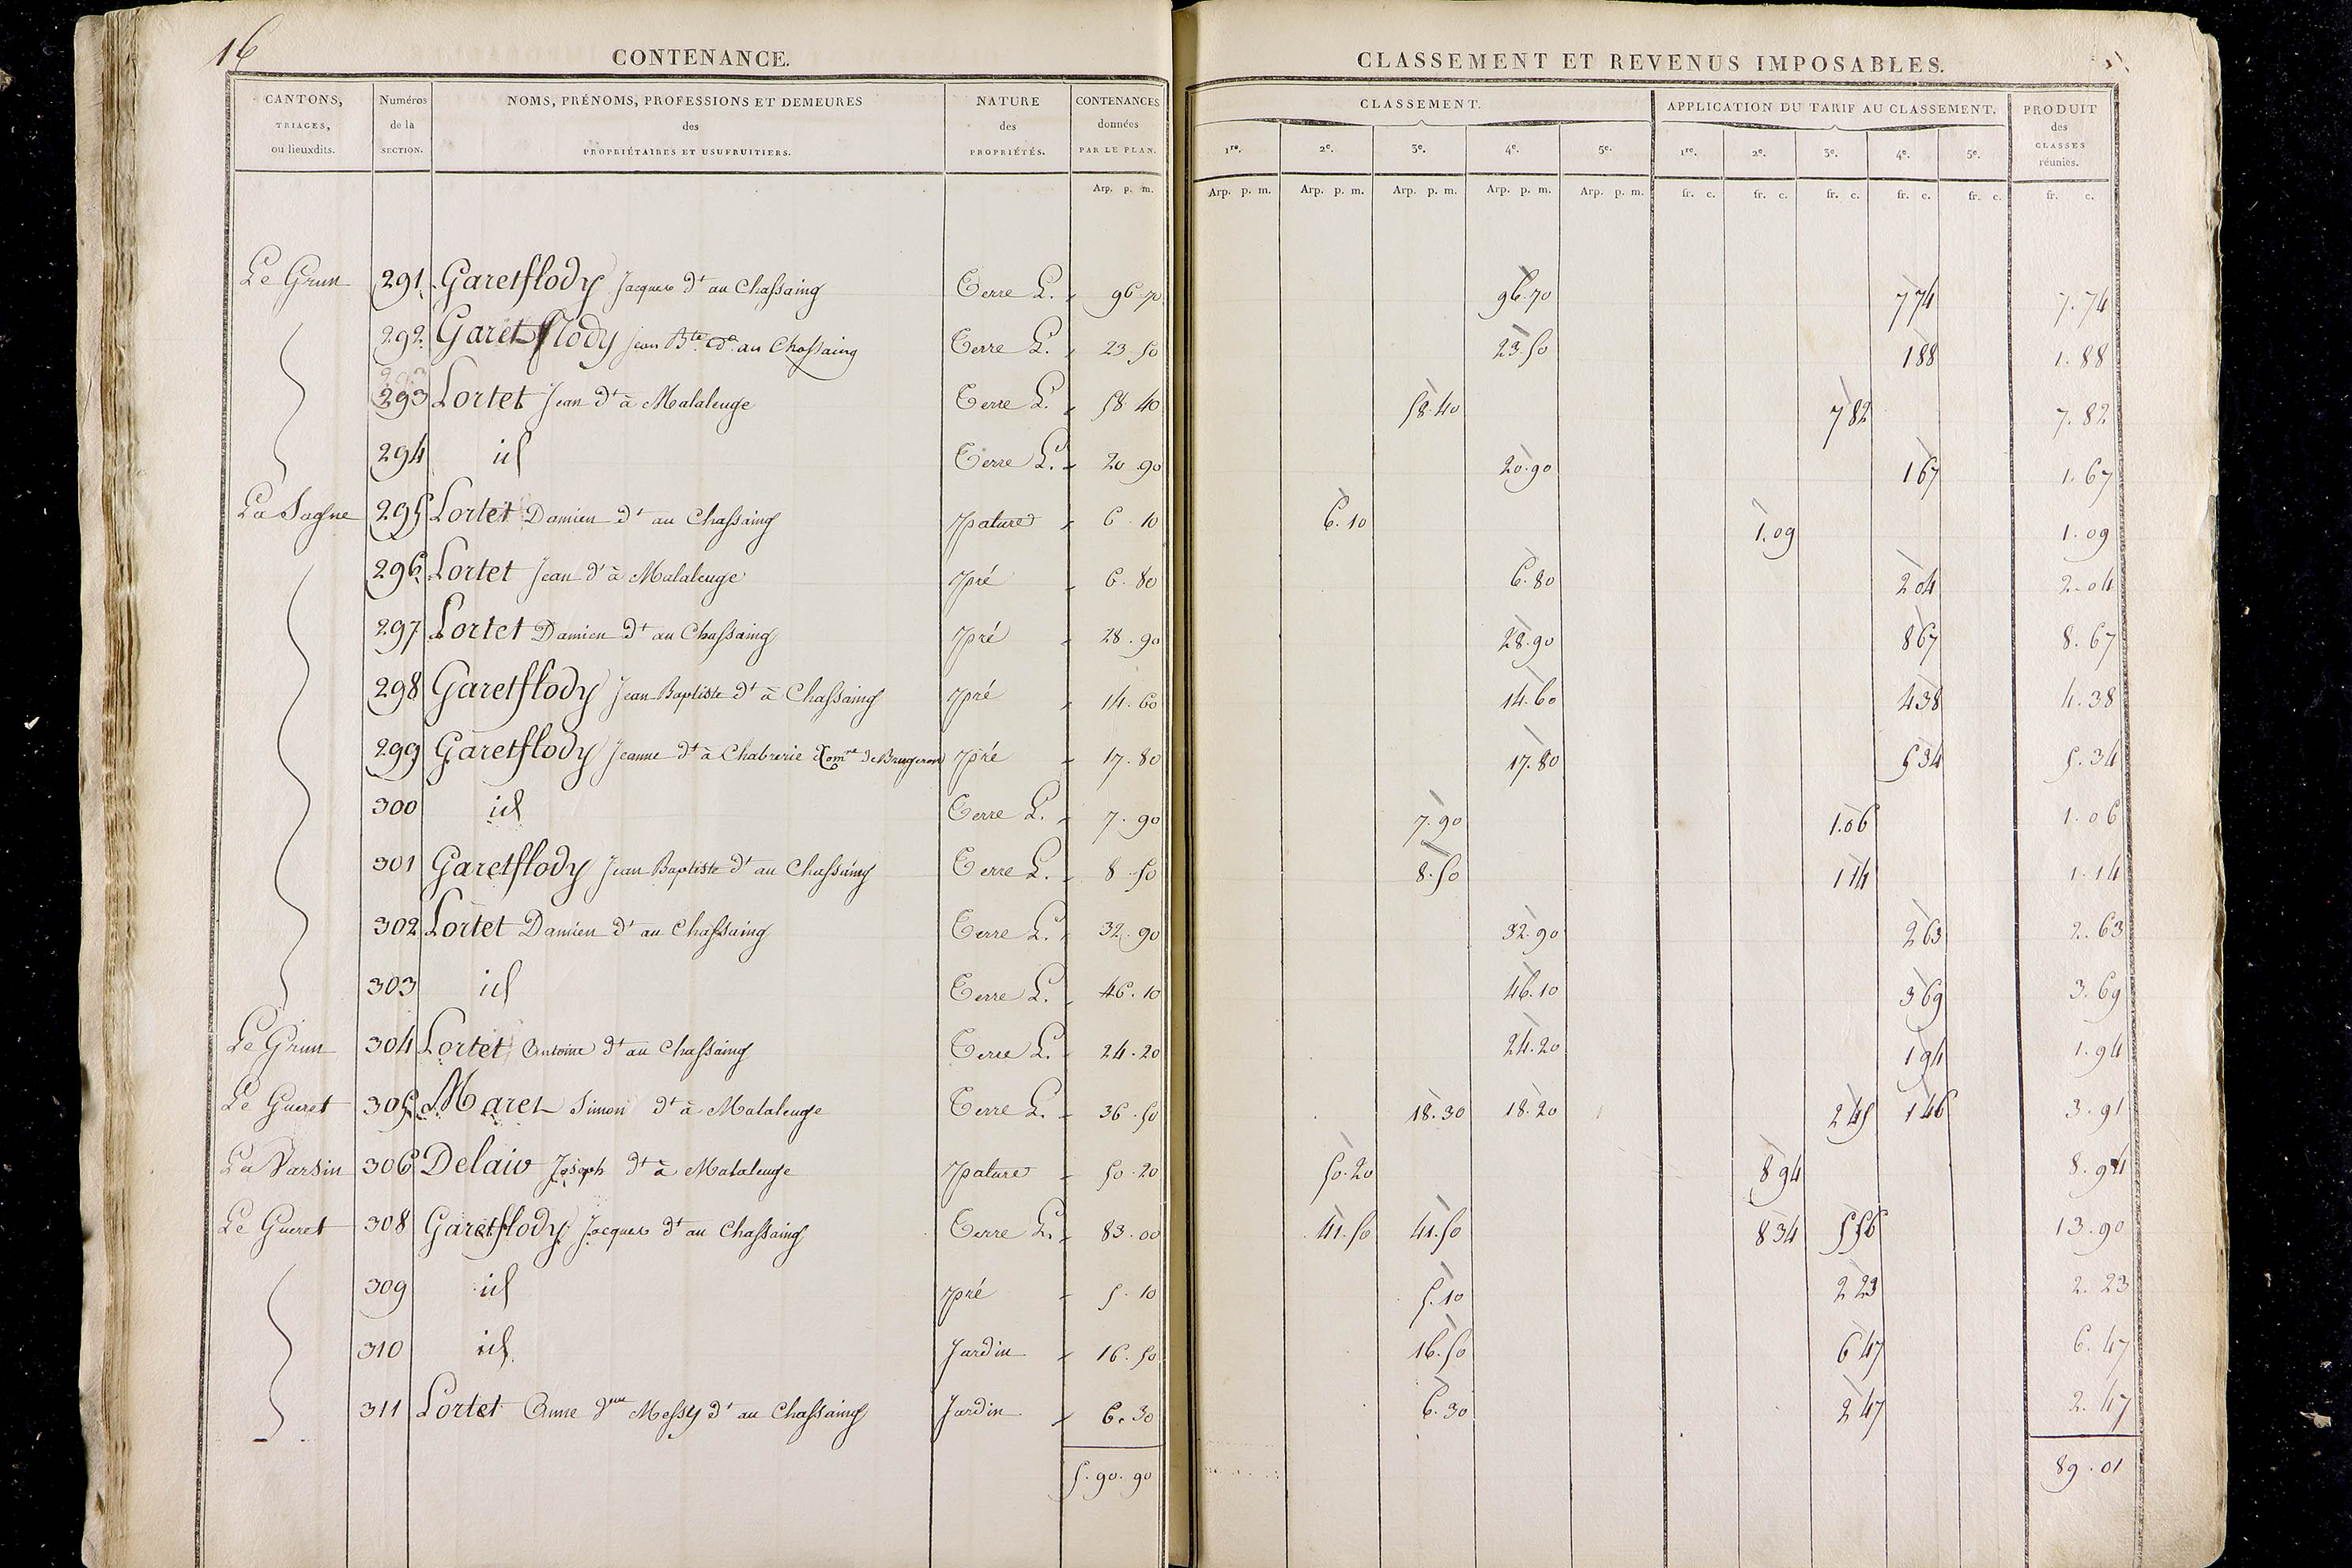 16
CONTENANCE.
CLASSEMENT ET REVENUS IMPOSABLES.
CANTONS, TRIAGES, ou lieuxdits. Numéros de la SECTION. NOMS, PRÉNOMS, PROFESSIONS ET DEMEURES des PROPRIÉTAIRES ET USUFRUITIERS. NATURE des PROPRIÉTÉS. CONTENANCES données PAR LE PLAN. CLASSEMENT. APPLICATION DU TARIF AU CLASSEMENT. PRODUIT des CLASSES réunies.
1re. 2e. 3e. 4e. 5e. 1re. 2e. 3e. 4e. 5e.
Arp. p. m. Arp. p. m. Arp. p. m. Arp. p. m. Arp. p. m. Arp. p. m. fr. c. fr. c. fr. c. fr. c. fr. c. fr. c.
Le Grun 291 Garetflody Jacques dt au Chassaing Terre L. 96.70 96.70 774 7.74
292 Garetflody Jean Bte au Chassaing Terre L. 23.50 23.50 188 1.88
293 Lortet Jean dt à Malaleuge Terre L. 58.40 58.40 782 7.82
294 id Terre L. 20.90 20.90 167 1.67
La Sagne 295 Lortet Damien dt au Chassaing pature 6.10 6.10 1.09 1.09
296 Lortet Jean dt à Malaleuge pré 6.80 6.80 204 2.04
297 Lortet Damien dt au Chassaing pré 28.90 28.90 867 8.67
298 Garetflody Jean Baptiste dt à Chassaing pré 14.60 14.60 438 4.38
299 Garetflody Jeanne dt à Chabrerie Comne de Brugeron pré 17.80 17.80 534 5.34
300 id Terre L. 7.90 7.90 1.06 1.06
301 Garetflody Jean Baptiste dt au Chassaing Terre L. 8.50 8.50 114 1.14
302 Lortet Damien dt au Chassaing Terre L. 32.90 32.90 263 2.63
303 id Terre L. 46.10 46.10 369 3.69
Le Grun 304 Lortet Antoine dt au Chassaing Terre L. 24.20 24.20 194 1.94
Le Gueret 305 Maret Simon dt à Malaleuge Terre L. 36.50 18.30 18.20 245 146 3.91
La 306 Delaiv Joseph dt à Malaleuge pature 50.20 50.20 894 8.94
Le Gueret 308 Garetflody Jacques dt au Chassaing Terre L. 83.00 41.50 41.50 834 556 13.90
309 id pré 5.10 5.10 223 2.23
310 id Jardin 16.50 16.50 647 6.47
311 Lortet Anne Messy dt au Chassaing Jardin 6.30 6.30 247 2.47
5.90.90 89.01